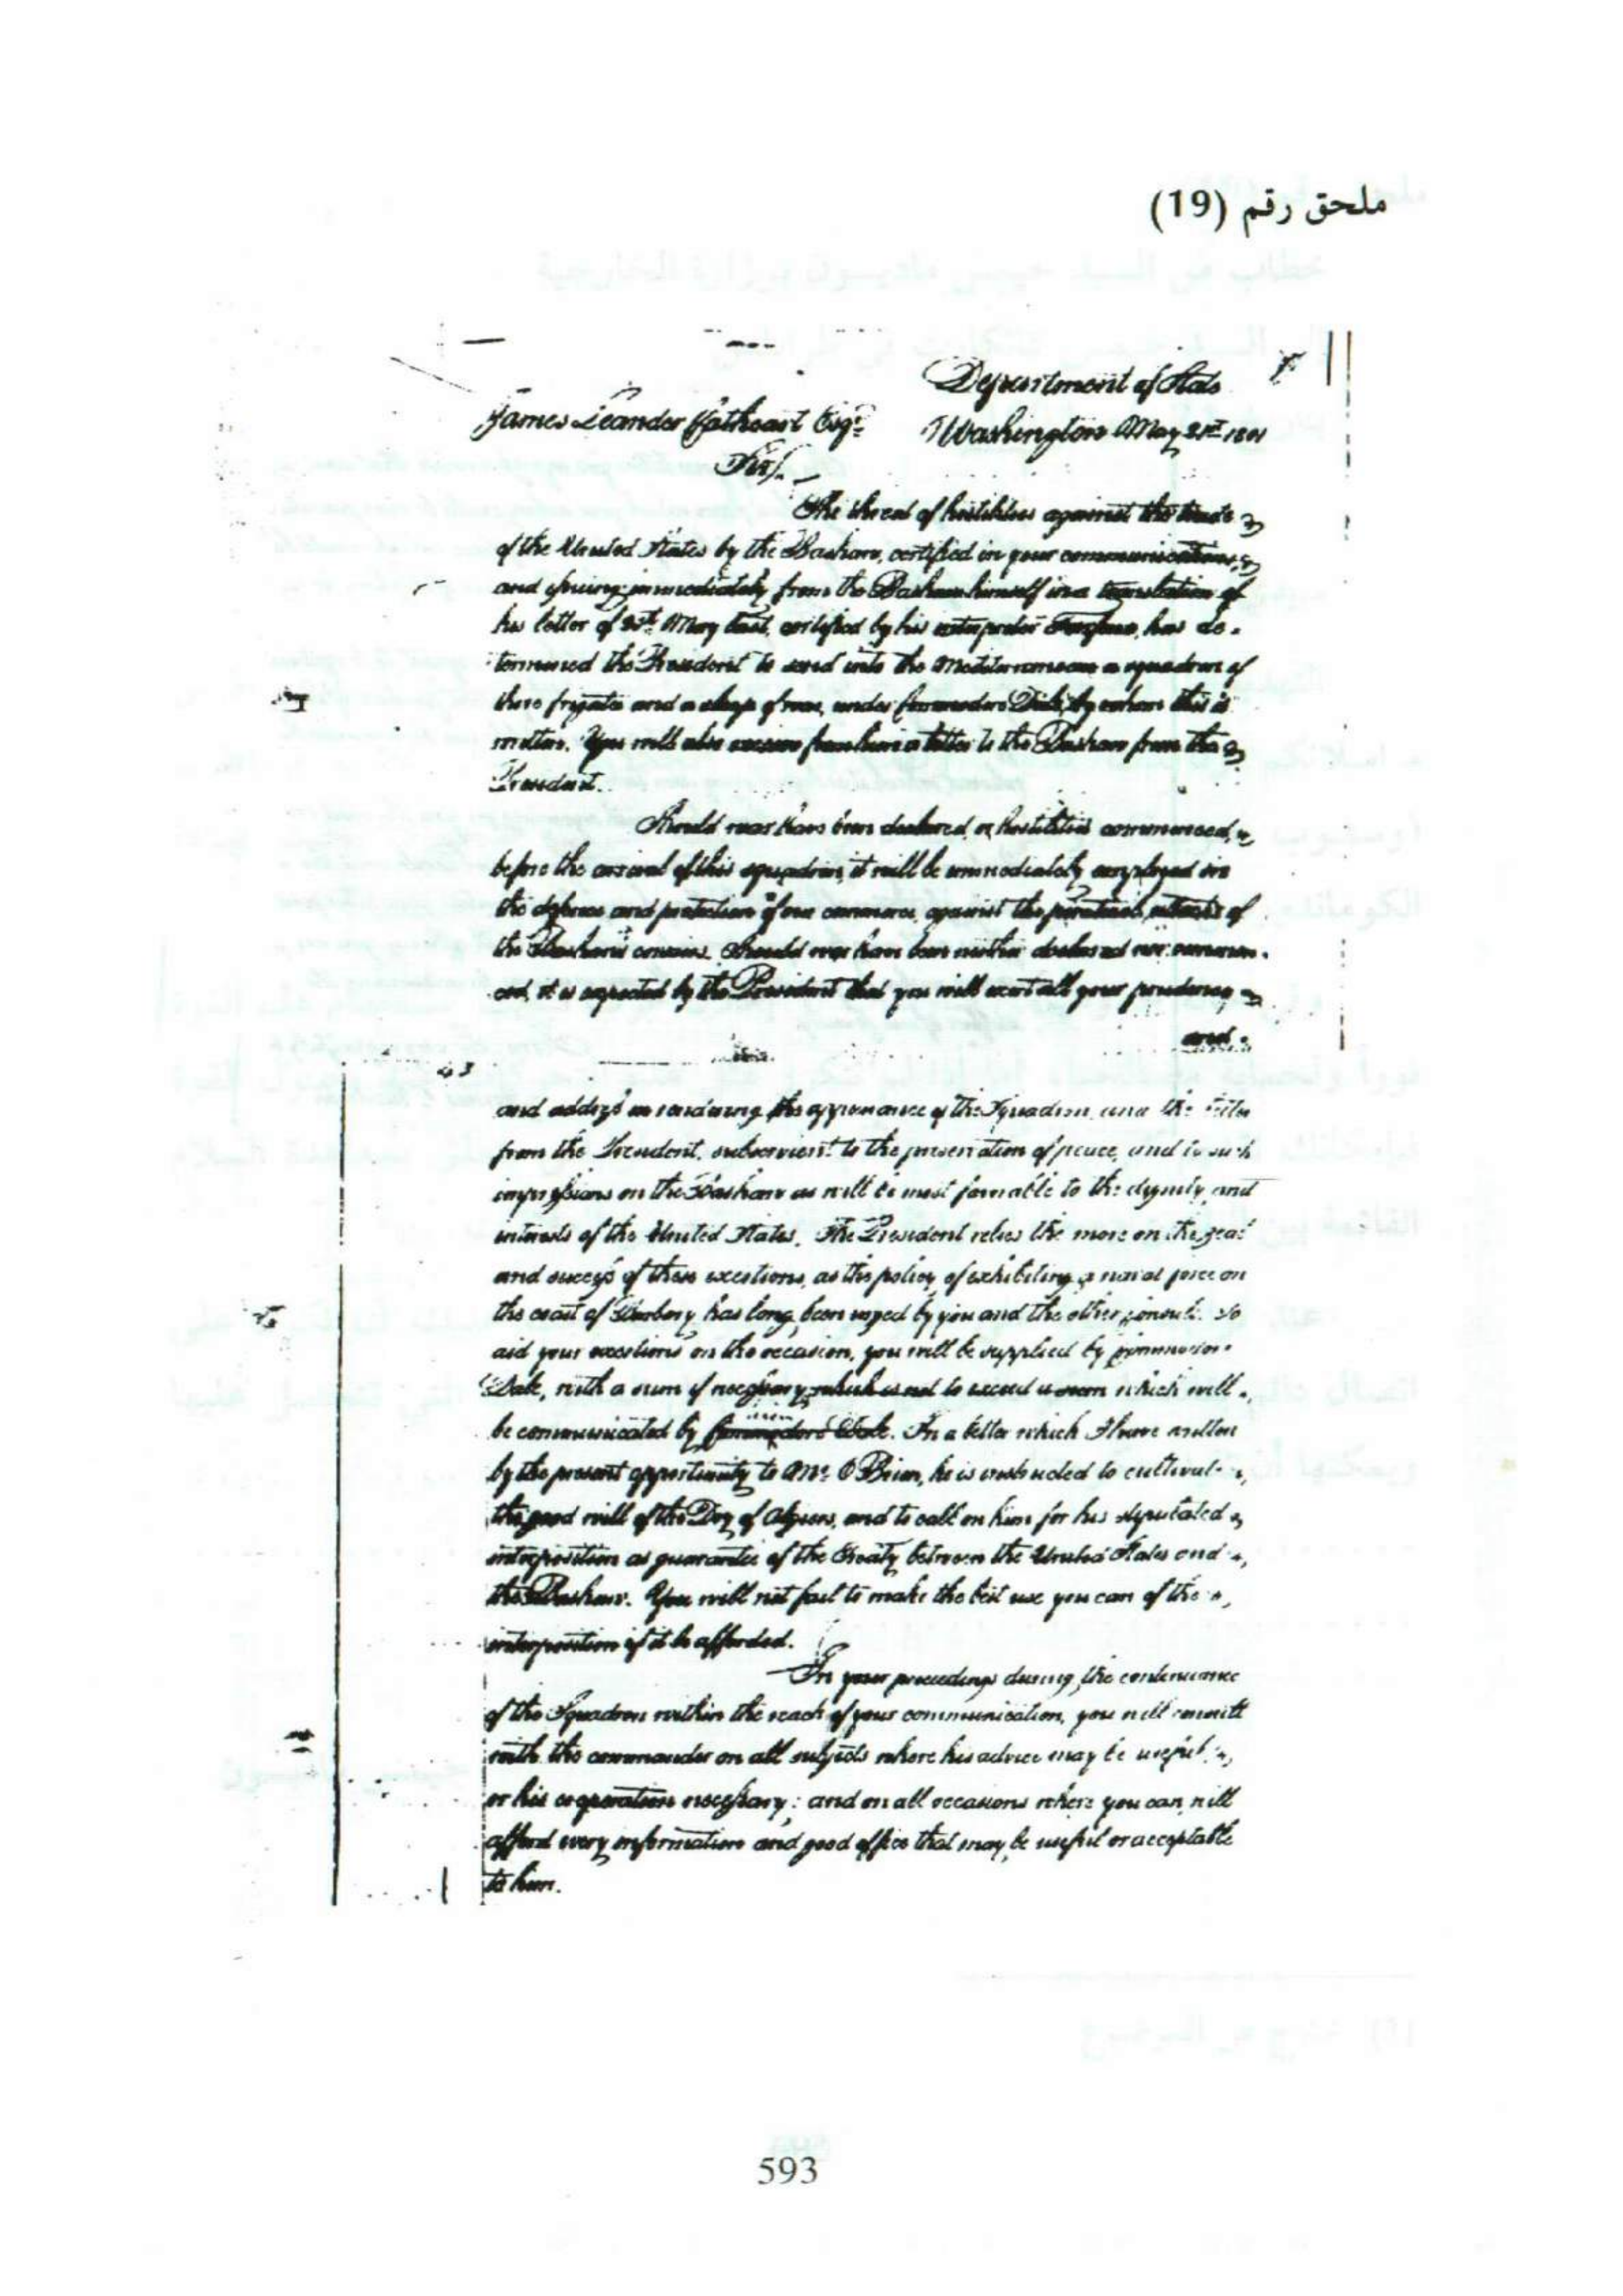 ملحق رقم (19)
Department of State
James Leander Cathcart Esqr. Washington May 21st 1801
Sir,
The threat of hostilities against the trade
of the United States by the Bashaw, certified in your communications,
and immediately from the Bashaw himself in a translation of
his letter of 25th May last, certified by his interpreter has de-
termined the President to send into the Mediterranean a squadron of
three frigates and a sloop of war, under Commodore Dale, by whom this is
written. You will also receive from him a letter to the Bashaw from the
President.
Should war have been declared, or hostilities commenced,
before the arrival of this squadron, it will be immediately employed in
the defence and protection of our commerce against the piratical attacks of
the Bashaw's corsairs. Should war have been neither declared nor commen-
ced, it is expected by the President that you will exert all your prudence,
and
and address in rendering the appearance of the Squadron, and the letter
from the President, subservient to the preservation of peace, and to such
impressions on the Bashaw as will be most favorable to the dignity and
interests of the United States. The President relies the more on the zeal
and success of these exertions, as the policy of exhibiting a naval force on
the coast of Barbary has long been urged by you and the other consuls. To
aid your exertions on the occasion, you will be supplied by Commodore
Dale, with a sum if necessary which is not to exceed a sum which will
be communicated by Commodore Dale. In a letter which I have written
by the present opportunity to Mr. O Brien, he is instructed to cultivate
the good will of the Dey of Algiers, and to call on him for his stipulated
interposition as guarantee of the Treaty between the United States and
the Bashaw. You will not fail to make the best use you can of the
interposition if it be afforded.
In your proceedings during the continuance
of the Squadron within the reach of your communication, you will consult
with the commander on all subjects where his advice may be useful,
or his cooperation necessary; and on all occasions where you can, will
afford every information and good office that may be useful or acceptable
to him.
593